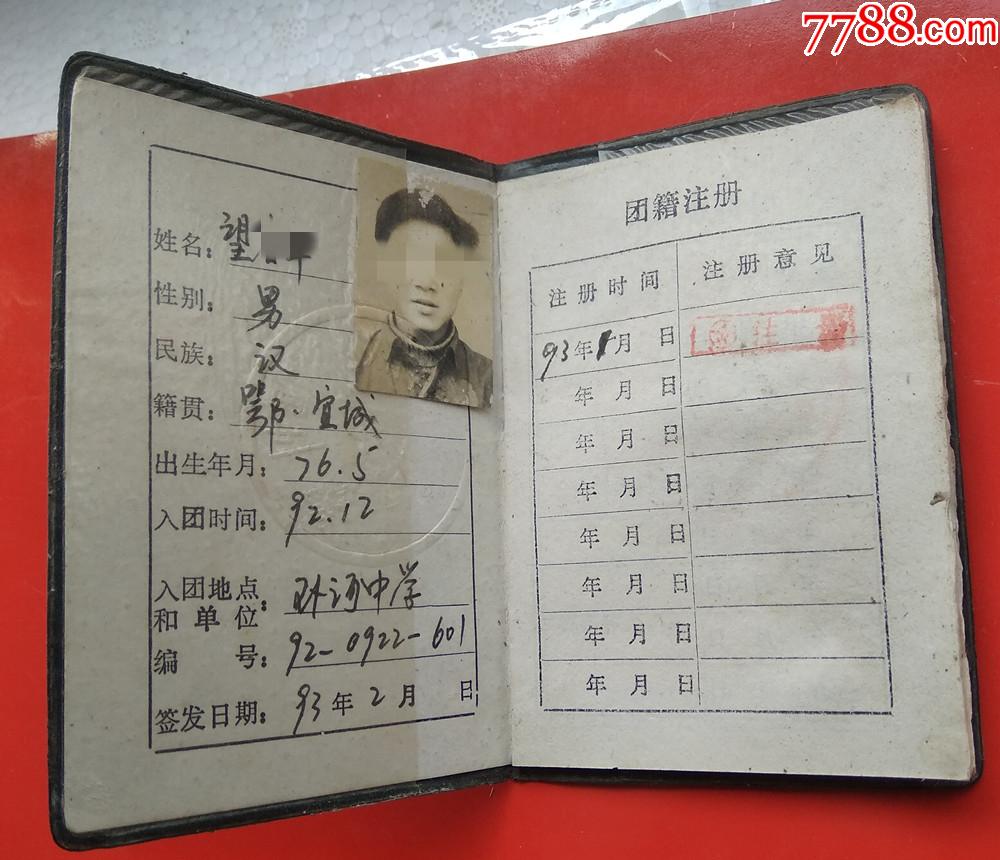 7788.com
姓名：望
性别：男
民族：汉
籍贯：鄂·宜城
出生年月：76.5
入团时间：92.12
入团地点
和单位：孙河中学
编 号：92-0922-601
签发日期：93年2月 日
团籍注册
注册时间 注册意见
93年1月 日
年 月 日
年 月 日
年 月 日
年 月 日
年 月 日
年 月 日
年 月 日